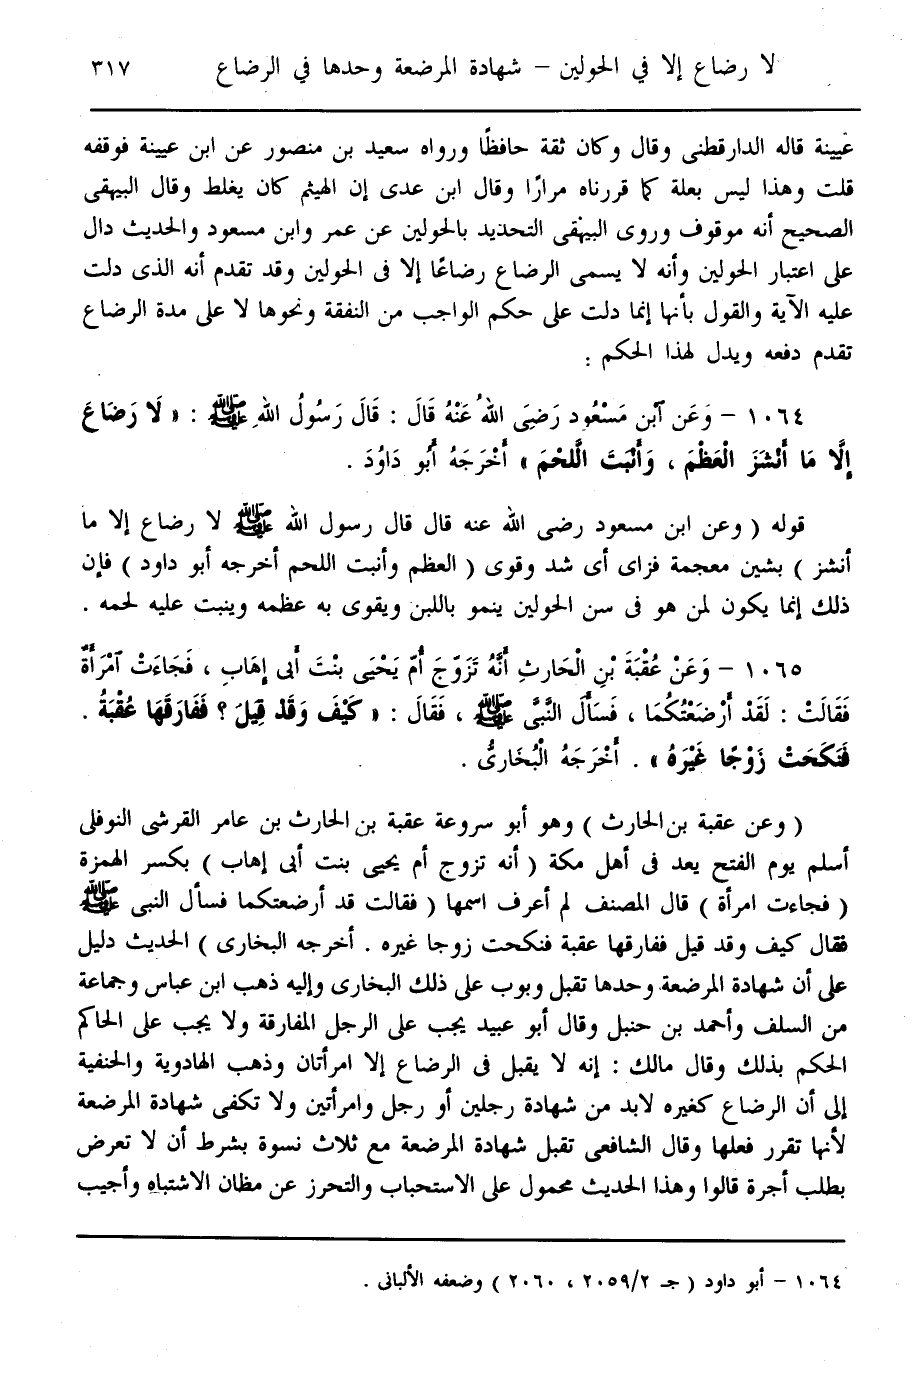 لا رضاع إلا في الحولين – شهادة المرضعة وحدها في الرضاع ٣١٧
عيينة قاله الدارقطنى وقال وكان ثقة حافظًا ورواه سعيد بن منصور عن ابن عيينة فوقفه
قلت وهذا ليس بعلة كما قررناه مرارًا وقال ابن عدى إن الهيثم كان يغلط وقال البيهقى
الصحيح أنه موقوف وروى البيهقى التحديد بالحولين عن عمر وابن مسعود والحديث دال
على اعتبار الحولين وأنه لا يسمى الرضاع رضاعًا إلا فى الحولين وقد تقدم أنه الذى دلت
عليه الآية والقول بأنها إنما دلت على حكم الواجب من النفقة ونحوها لا على مدة الرضاع
تقدم دفعه ويدل لهذا الحكم :
١٠٦٤ – وَعَن آبن مَسْعُود رَضِىَ اللهُ عَنْهُ قَالَ : قَالَ رَسُولُ اللهِ ﷺ : « لَا رَضَاعَ
إِلَّا مَا أَنْشَزَ الْعَظْمَ ، وَأَنْبَتَ الَّلحْمَ » أَخْرَجَهُ أَبُو دَاوُدَ .
قوله ( وعن ابن مسعود رضى الله عنه قال قال رسول الله ﷺ لا رضاع إلا ما
أنشز ) بشين معجمة فزاى أى شد وقوى ( العظم وأنبت اللحم أخرجه أبو داود ) فإن
ذلك إنما يكون لمن هو فى سن الحولين ينمو باللبن ويقوى به عظمه وينبت عليه لحمه .
١٠٦٥ – وَعَنْ عُقْبَةَ بْنِ الْحَارثِ أَنَّهُ تَزَوَّجَ أُمّ يَحْيَى بنْتَ أَبى إهَابِ ، فَجَاءَتْ آمْرَأَةٌ
فَقَالَتْ : لَقَدْ أَرْضَعْتُكُمَا ، فَسَأَلَ النَّبىَّ ﷺ ، فَقَالَ : « كَيْفَ وَقَدْ قِيلَ ؟ فَفَارَقَهَا عُقْبَةُ .
فَنَكَحَتْ زَوْجًا غَيْرَهُ » . أَخْرَجَهُ الْبُخَارىُّ .
( وعن عقبة بن الحارث ) وهو أبو سروعة عقبة بن الحارث بن عامر القرشى النوفلى
أسلم يوم الفتح يعد فى أهل مكة ( أنه تزوج أم يحيى بنت أبى إهاب ) بكسر الهمزة
( فجاءت امرأة ) قال المصنف لم أعرف اسمها ( فقالت قد أرضعتكما فسأل النبى ﷺ
فقال كيف وقد قيل ففارقها عقبة فنكحت زوجا غيره . أخرجه البخارى ) الحديث دليل
على أن شهادة المرضعة وحدها تقبل وبوب على ذلك البخارى وإليه ذهب ابن عباس وجماعة
من السلف وأحمد بن حنبل وقال أبو عبيد يجب على الرجل المفارقة ولا يجب على الحاكم
الحكم بذلك وقال مالك : إنه لا يقبل فى الرضاع إلا امرأتان وذهب الهادوية والحنفية
إلى أن الرضاع كغيره لابد من شهادة رجلين أو رجل وامرأتين ولا تكفى شهادة المرضعة
لأنها تقرر فعلها وقال الشافعى تقبل شهادة المرضعة مع ثلاث نسوة بشرط أن لا تعرض
بطلب أجرة قالوا وهذا الحديث محمول على الاستحباب والتحرز عن مظان الاشتباه وأجيب
١٠٦٤ – أبو داود ( جـ ٢/ ٢٠٥٩ ، ٢٠٦٠ ) وضعفه الألبانى .